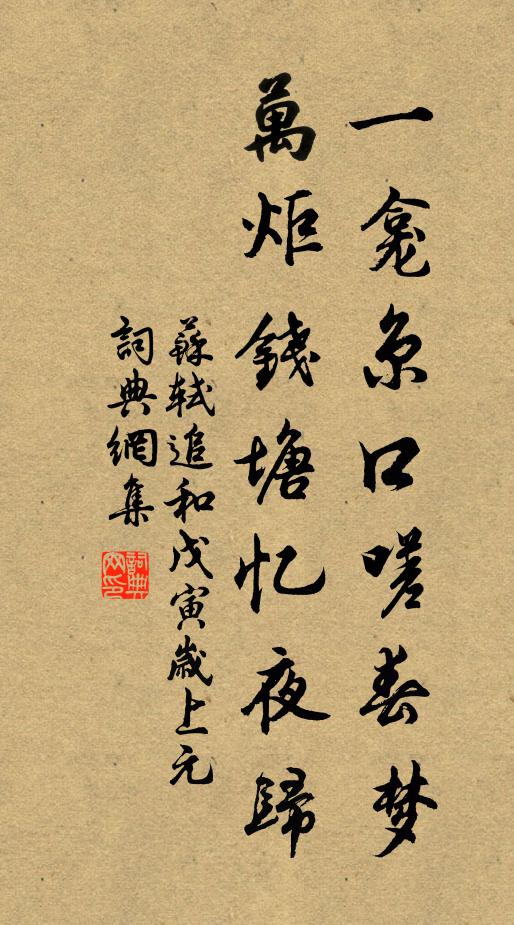 一龛京口嗟春梦
萬炬錢塘忆夜歸
蘇轼追和戊寅歲上元
詞典網集
詞典网印